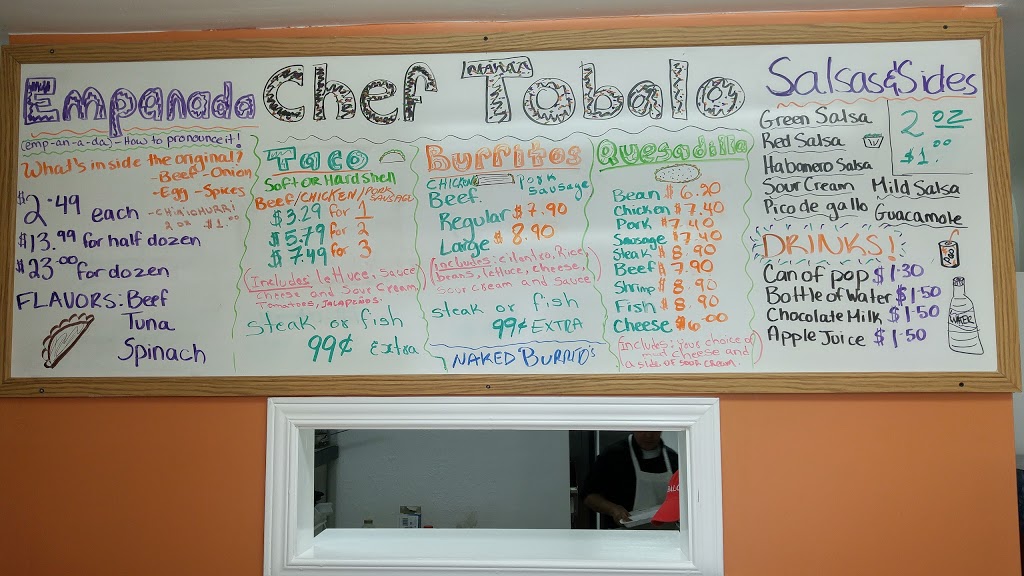 Empanada
(emp-an-a-da) - How to pronounce it!
What's inside the original?
- Beef - Onion
- Egg - Spices
- CHIMICHURRI
2 oz $1.00
$2.49 each
$13.99 for half dozen
$23.00 for dozen
FLAVORS: Beef
Tuna
Spinach
Chef Tobalo
Taco
Soft or Hard shell
Beef/CHICKEN/PORK SAUSAGE
$3.29 for 1
$5.79 for 2
$7.49 for 3
(Includes lettuce, Sauce
cheese and Sour Cream,
Tomatoes, Jalapeños.
steak or fish
99¢ Extra
Burritos
CHICKEN Pork
Beef. Sausage
Regular $7.90
Large $8.90
(includes: cilantro, Rice,
beans, lettuce, cheese,
sour cream and sauce)
steak or fish
99¢ EXTRA
NAKED BURRITO'S
Quesadilla
Bean $6.20
Chicken $7.40
Pork $7.40
Sausage $7.40
Steak $8.90
Beef $7.90
Shrimp $8.90
Fish $8.90
Cheese $6.00
(includes: your choice of
cheese and
a side of sour cream.
Salsas & Sides
Green Salsa
Red Salsa
Habanero Salsa
Sour Cream Mild Salsa
Pico de gallo Guacamole
2 oz
$1.00
DRINKS!
Can of pop $1.30
Bottle of Water $1.50
Chocolate Milk $1.50
Apple Juice $1.50
WATER